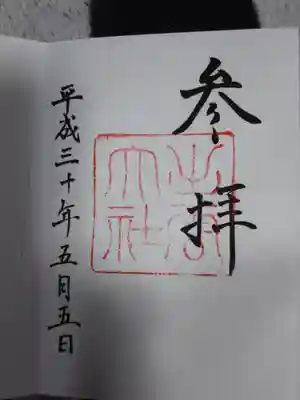 参拝
出雲大社
平成三十年五月五日